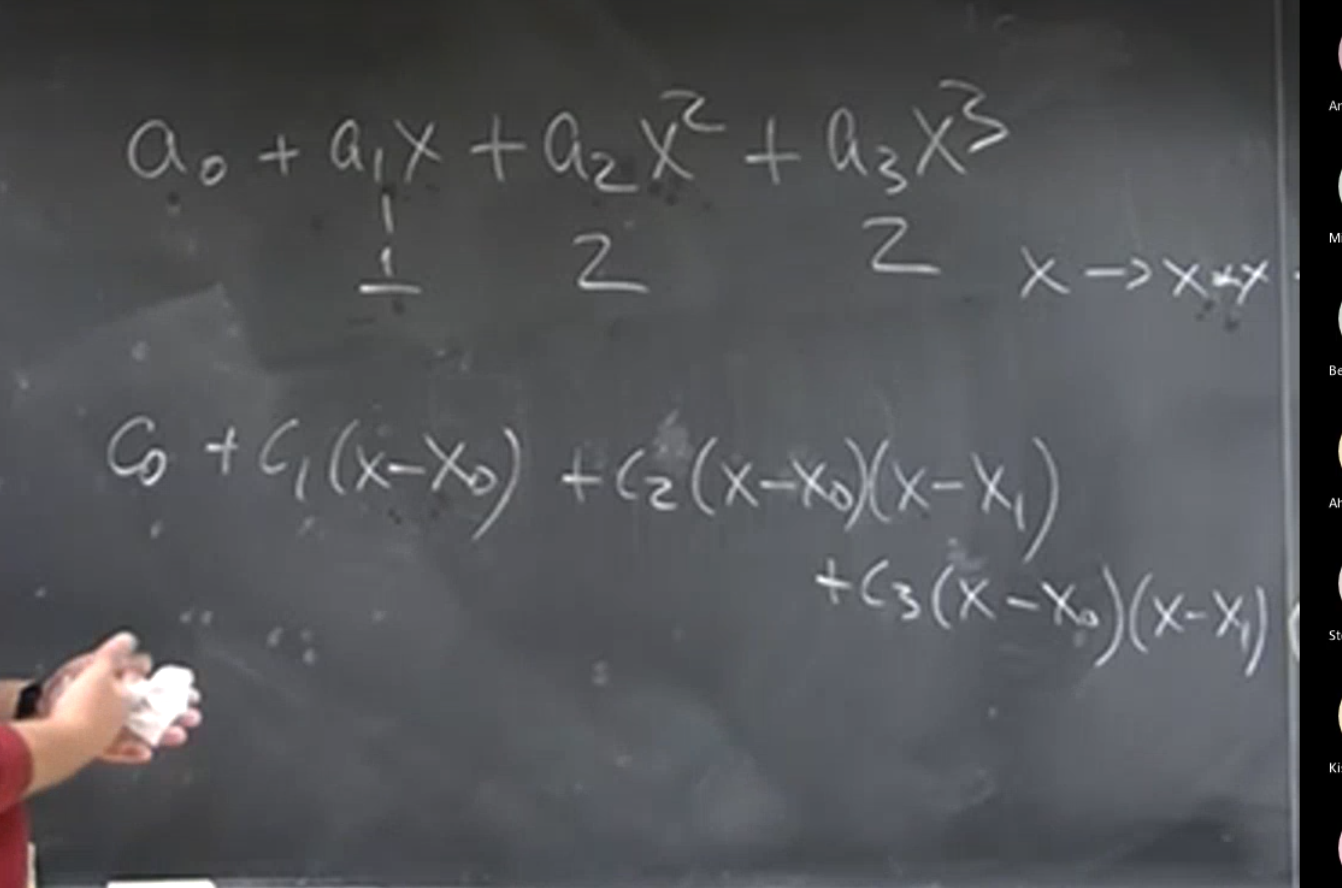 a₀ + a₁x + a₂x² + a₃x³
1 2 2
1 x → x·x ·
c₀ + c₁(x-x₀) + c₂(x-x₀)(x-x₁)
+ c₃(x-x₀)(x-x₁) (
Ar
Mi
Be
Ah
Ste
Kis